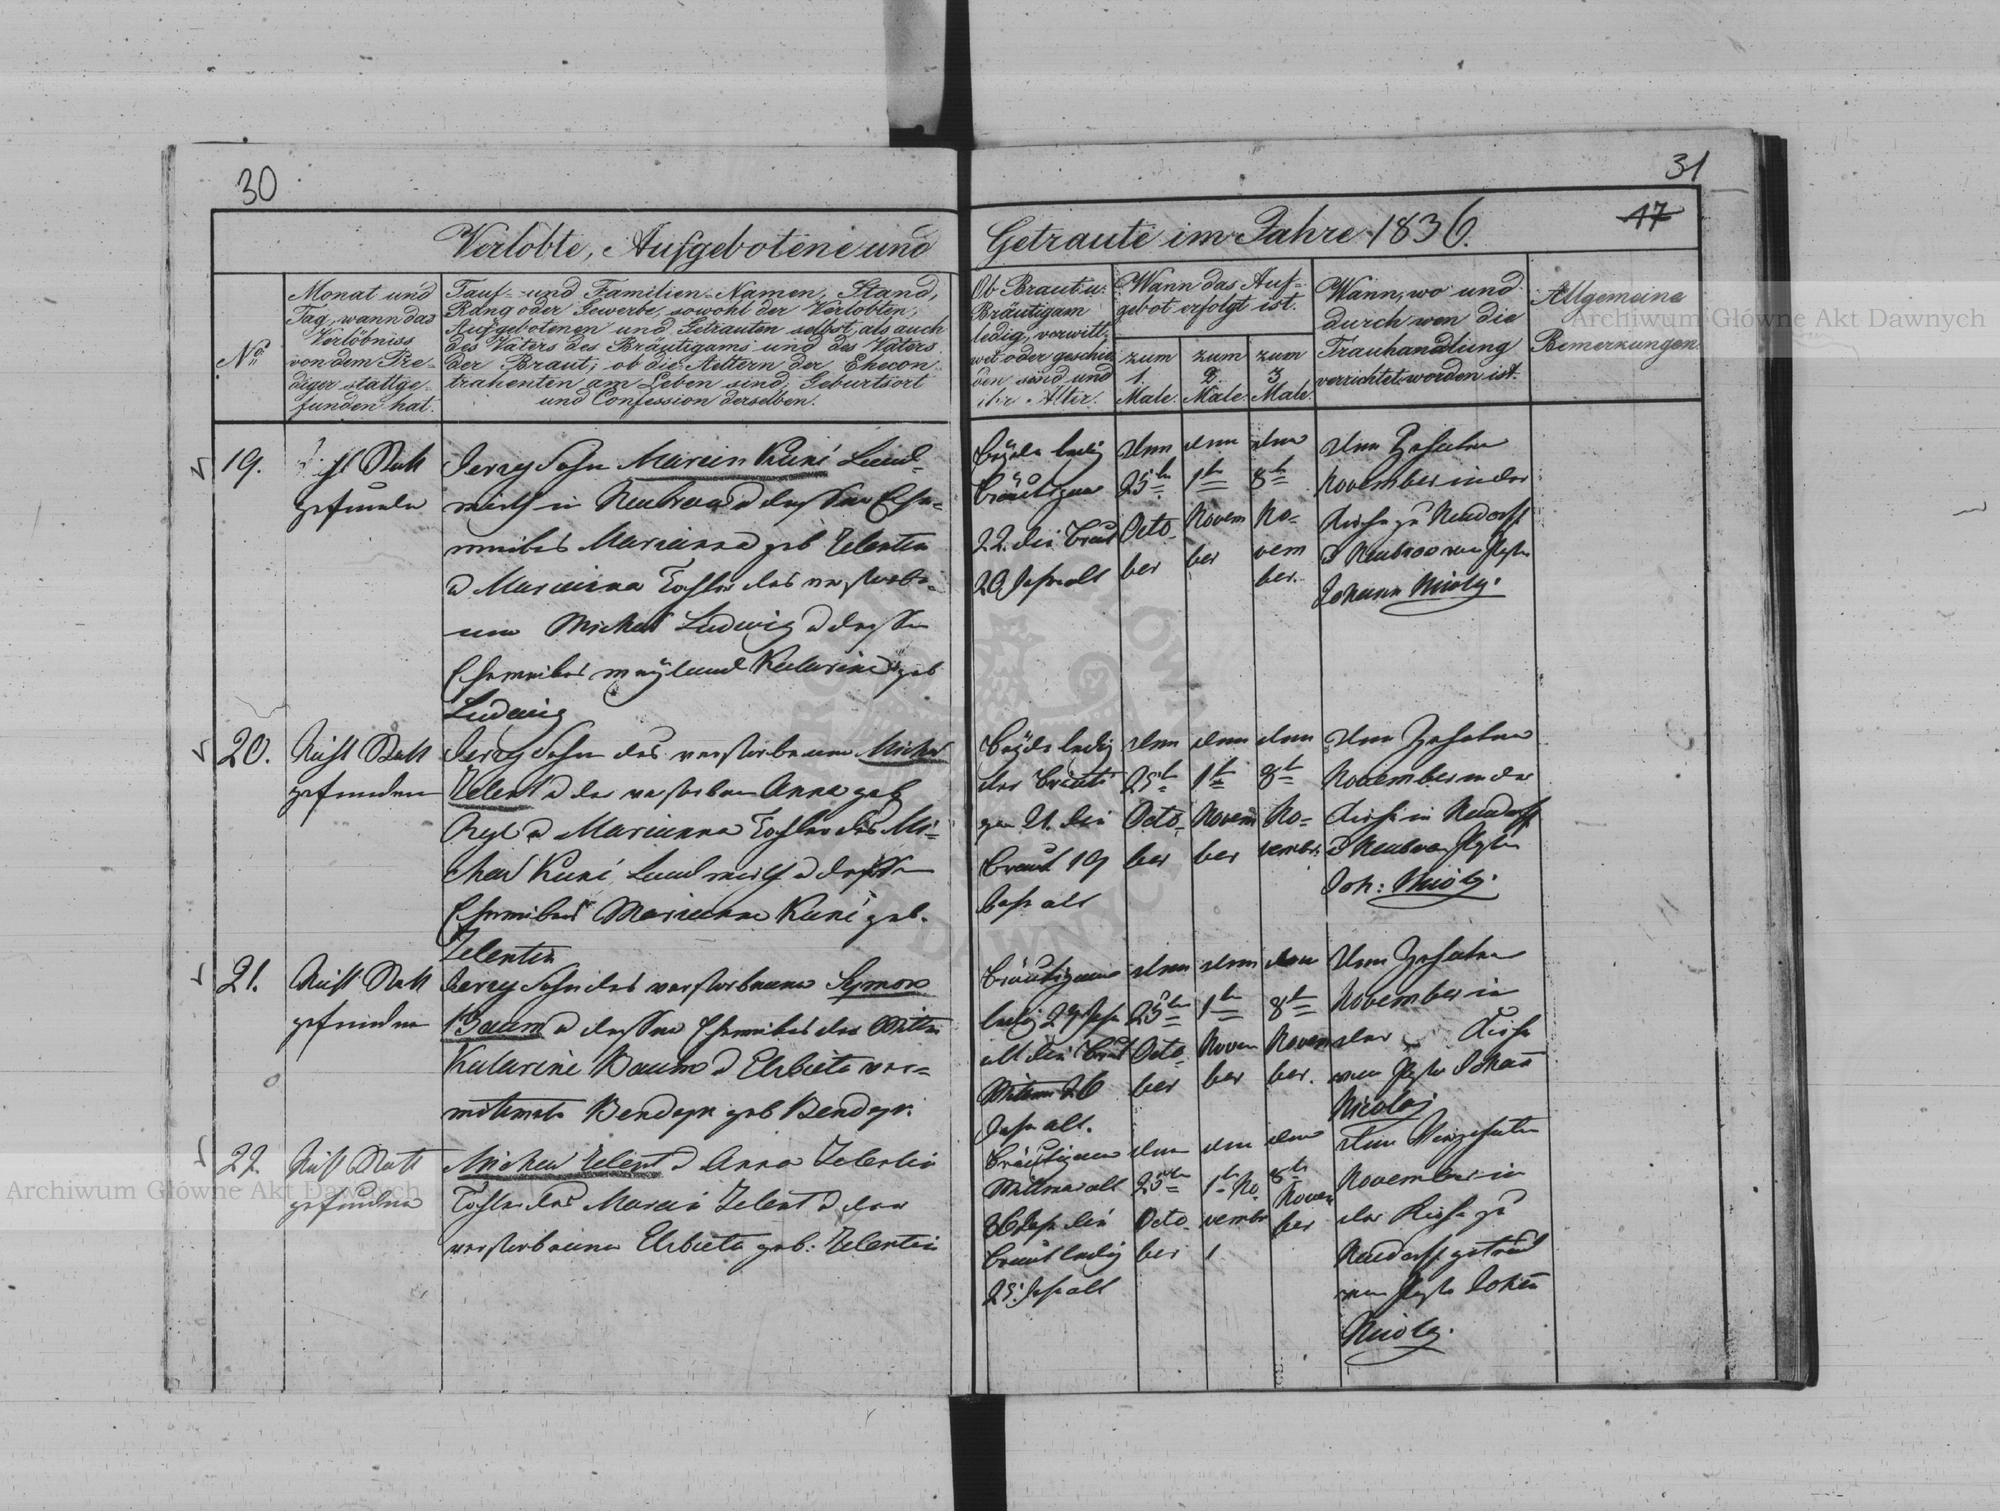 30
31
17
Verlobte, Aufgebotene und
Getraute im Jahre 1836.
No
Monat und
Tag, wann das
Verlöbniss
von dem Pre-
diger stattge-
funden hat.
Tauf- und Familien-Namen, Stand,
Rang oder Gewerbe, sowohl der Verlobten,
Aufgebotenen und Getrauten selbst, als auch
des Vaters des Bräutigams und des Vaters
der Braut; ob die Aeltern der Ehecon-
trahenten am Leben sind, Geburtsort
und Confession derselben.
Ob Braut u.
Bräutigam
ledig, verwitt-
wet oder geschie-
den sind und
ihr Alter.
Wann das Auf-
gebot erfolgt ist.
zum
1.
Male.
zum
2.
Male
zum
3
Male.
Wann, wo und
durch wen die
Trauhandlung
verrichtet worden ist.
Allgemeine
Bemerkungen.
19.
Statt
gefunden
Jerzy Sohn Marcin Kuni Land-
wirth in dessen Ehe-
weibes Marianna geb Zelentin
Marianna Tochter des verstorbe-
nen Michal Ludwig d dessen
Eheweibes weyland Katarina geb
Ludwig
Beyde ledig
Bräutigam
22. die Braut
20 Jahr alt
den
25t
Octo-
ber
den
1t
Novem
ber
den
8t
No-
vem
ber.
den Zehnten
November in der
Kirche zu Neudorff
Johann Nicolaj.
20.
Nicht Statt
gefunden
Jerzy Sohn des verstorbenen Michal
Zelent d der verstorbenen Anna geb
d Marianna Tochter des Mi-
chal Kuni Landwirth d dessen
Eheweibes Marianna Kuni geb.
Zelentin
Beyde ledig
der Bräuti-
gam 21. die
Braut 19
Jahr alt
den
25t
Octo-
ber
den
1t
Novem
ber
den
8t
No-
vember
den Zehnten
November in der
Kirche in Neudorff
Joh: Nicolaj.
21.
Nicht Statt
gefunden
Jerzy Sohn des verstorbenen Symon
Baum d dessen Eheweibes der Wittwe
Katarina Baum d Elzbieta ver-
wittwete geb
Bräutigam
ledig Jahr
alt die Braut
Wittwe 26
Jahr alt.
den
25t
Octo-
ber
den
1t
Novem
ber
den
8t
Novem
ber.
den Zehnten
November in
der Kirche
Johann
Nicolaj
22.
Nicht Statt
gefunden
Michal Zelent d Anna Zelentin
Tochter des Marcin Zelent d der
verstorbenen Elzbieta geb: Zelentin
Bräutigam
Wittwer alt
36 Jahr die
Braut ledig
25. Jahr alt
den
25t
Octo-
ber
den
1t No-
vember
1
den
8t
Novem
ber
den Vierzehnten
November in
der Kirche zu
Neudorff getraut
Johann
Nicolaj.
Archiwum Główne Akt Dawnych
Archiwum Główne Akt Dawnych